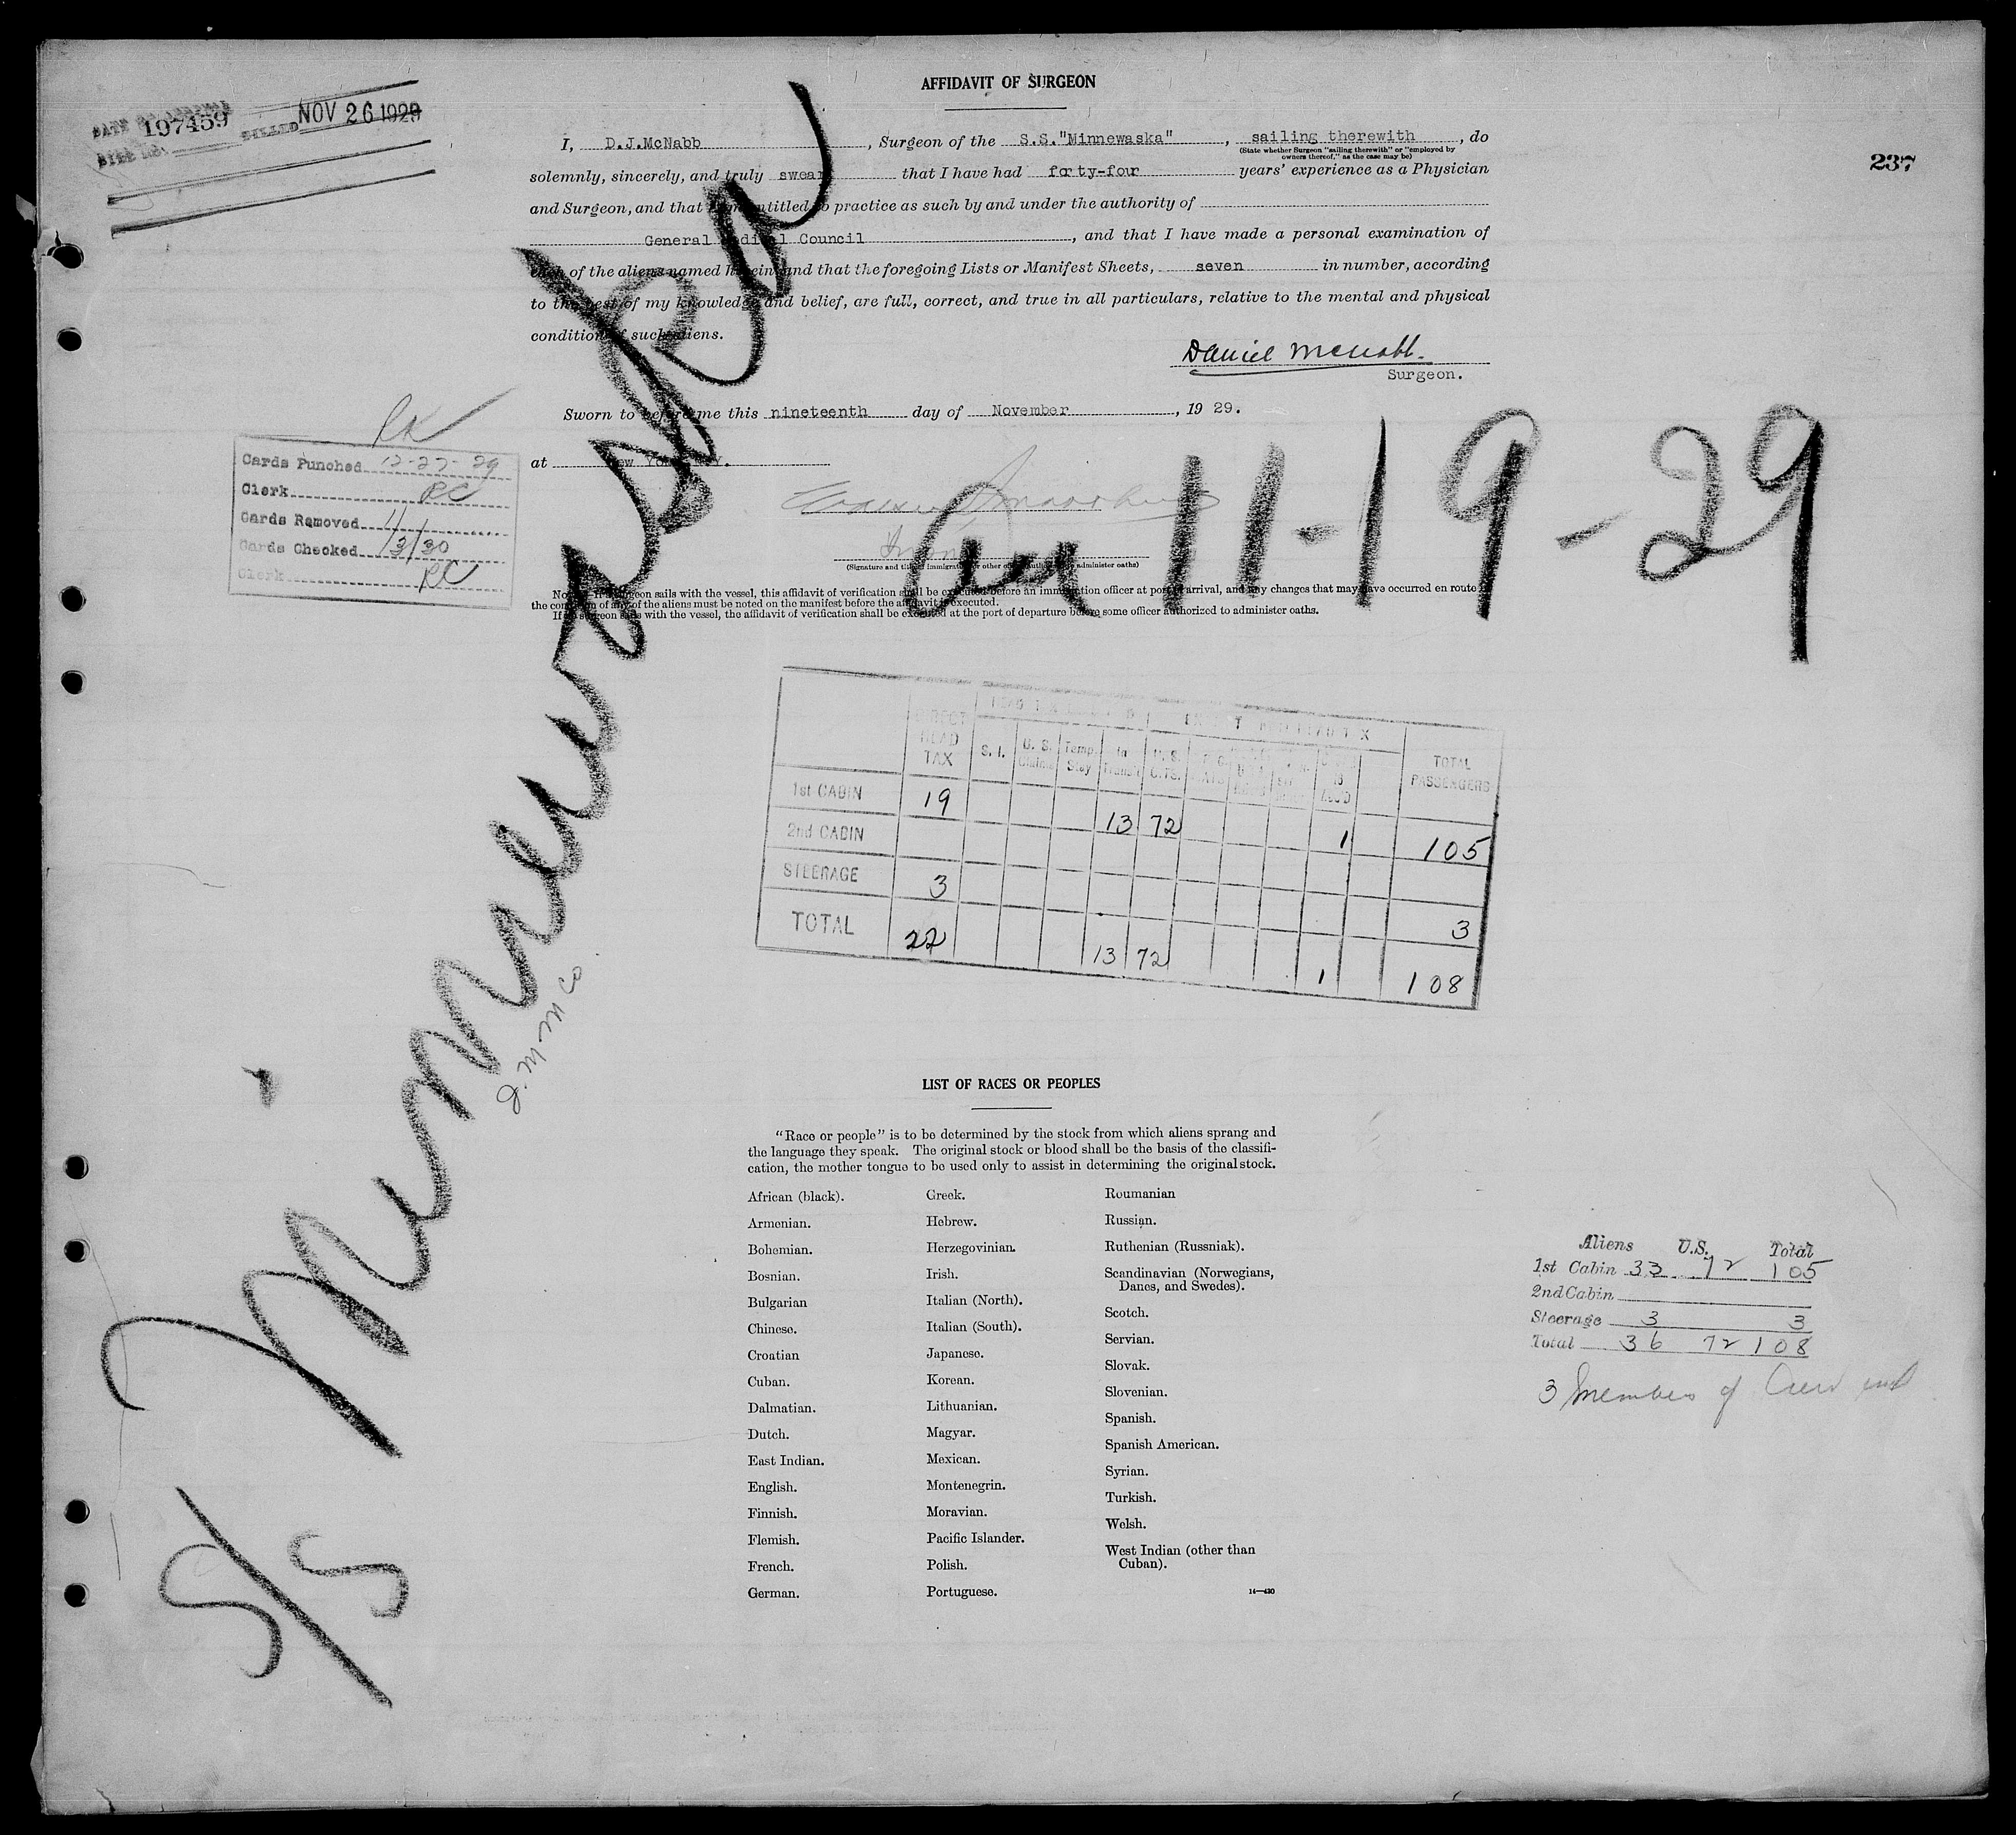 AFFIDAVIT OF SURGEON
197459 BILLED NOV 26 1929
237
I, D.J.McNabb, Surgeon of the S.S."Minnewaska", sailing therewith, do
(State whether Surgeon "sailing therewith" or "employed by
owners thereof," as the case may be)
solemnly, sincerely, and truly swear that I have had forty-four years' experience as a Physician
and Surgeon, and that I am entitled to practice as such by and under the authority of
General Medical Council, and that I have made a personal examination of
each of the aliens named herein and that the foregoing Lists or Manifest Sheets, seven in number, according
to the best of my knowledge and belief, are full, correct, and true in all particulars, relative to the mental and physical
condition of such aliens.
Daniel McNabb.
Surgeon.
Sworn to before me this nineteenth day of November, 1929.
at New York, N.Y.
Cards Punched 12-27-29
Clerk RC
Cards Removed
Cards Checked 1/3/30
Clerk RC
(Signature and title of immigration or other officer authorized to administer oaths)
Arr 11-19-29
Note.—If a surgeon sails with the vessel, this affidavit of verification shall be executed before an immigration officer at port of arrival, and any changes that may have occurred en route in
the condition of any of the aliens must be noted on the manifest before the affidavit is executed.
with the vessel, the affidavit of verification shall be executed at the port of departure before some officer authorized to administer oaths.
S/S Minnewaska
DIRECT HEAD TAX S. I. U. S. Claims Temp. Stay In Transit U. S. CITS. TOTAL PASSENGERS
1st CABIN 19 13 72 1 105
2nd CABIN
STEERAGE 3 3
TOTAL 22 13 72 1 108
LIST OF RACES OR PEOPLES
"Race or people" is to be determined by the stock from which aliens sprang and
the language they speak. The original stock or blood shall be the basis of the classifi-
cation, the mother tongue to be used only to assist in determining the original stock.
African (black).
Armenian.
Bohemian.
Bosnian.
Bulgarian
Chinese.
Croatian
Cuban.
Dalmatian.
Dutch.
East Indian.
English.
Finnish.
Flemish.
French.
German.
Greek.
Hebrew.
Herzegovinian.
Irish.
Italian (North).
Italian (South).
Japanese.
Korean.
Lithuanian.
Magyar.
Mexican.
Montenegrin.
Moravian.
Pacific Islander.
Polish.
Portuguese.
Roumanian
Russian.
Ruthenian (Russniak).
Scandinavian (Norwegians,
Danes, and Swedes).
Scotch.
Servian.
Slovak.
Slovenian.
Spanish.
Spanish American.
Syrian.
Turkish.
Welsh.
West Indian (other than
Cuban).
14—430
Aliens U.S. Total
1st Cabin 33 72 105
2nd Cabin
Steerage 3 3
Total 36 72 108
3 Members of Crew